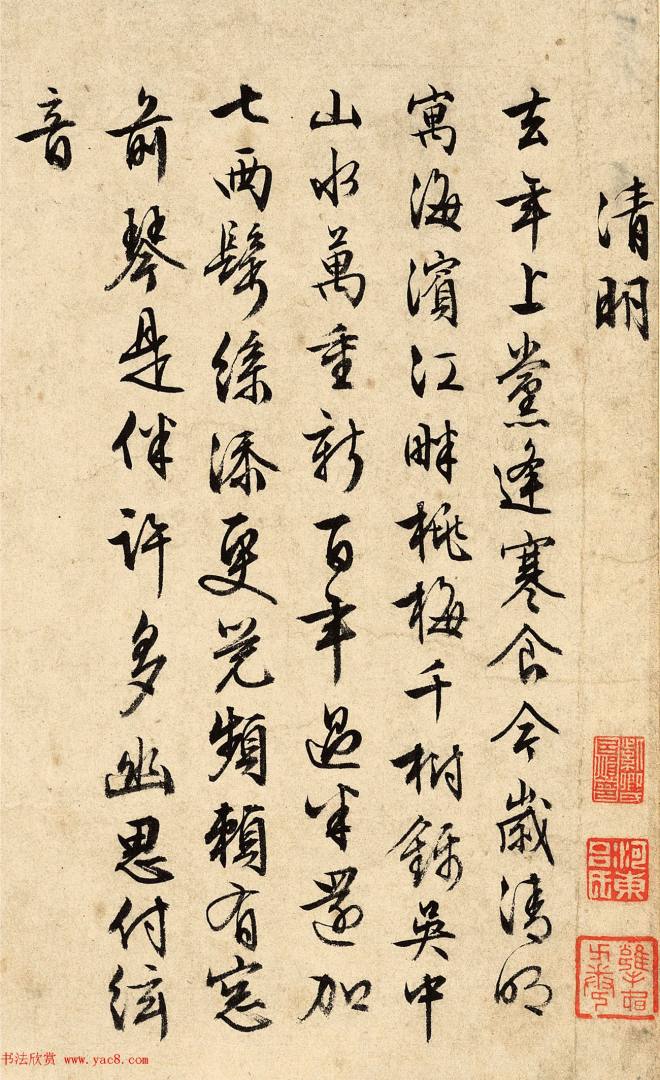 清明
去年上黨逢寒食今歲清明
寓海濱江畔桃梅千樹錦吳中
山水萬重新百年過半還加
七兩鬢添更覺頻賴有窓
前琴是伴許多幽思付絃
音
河東
呂氏
书法欣赏 www.yac8.com